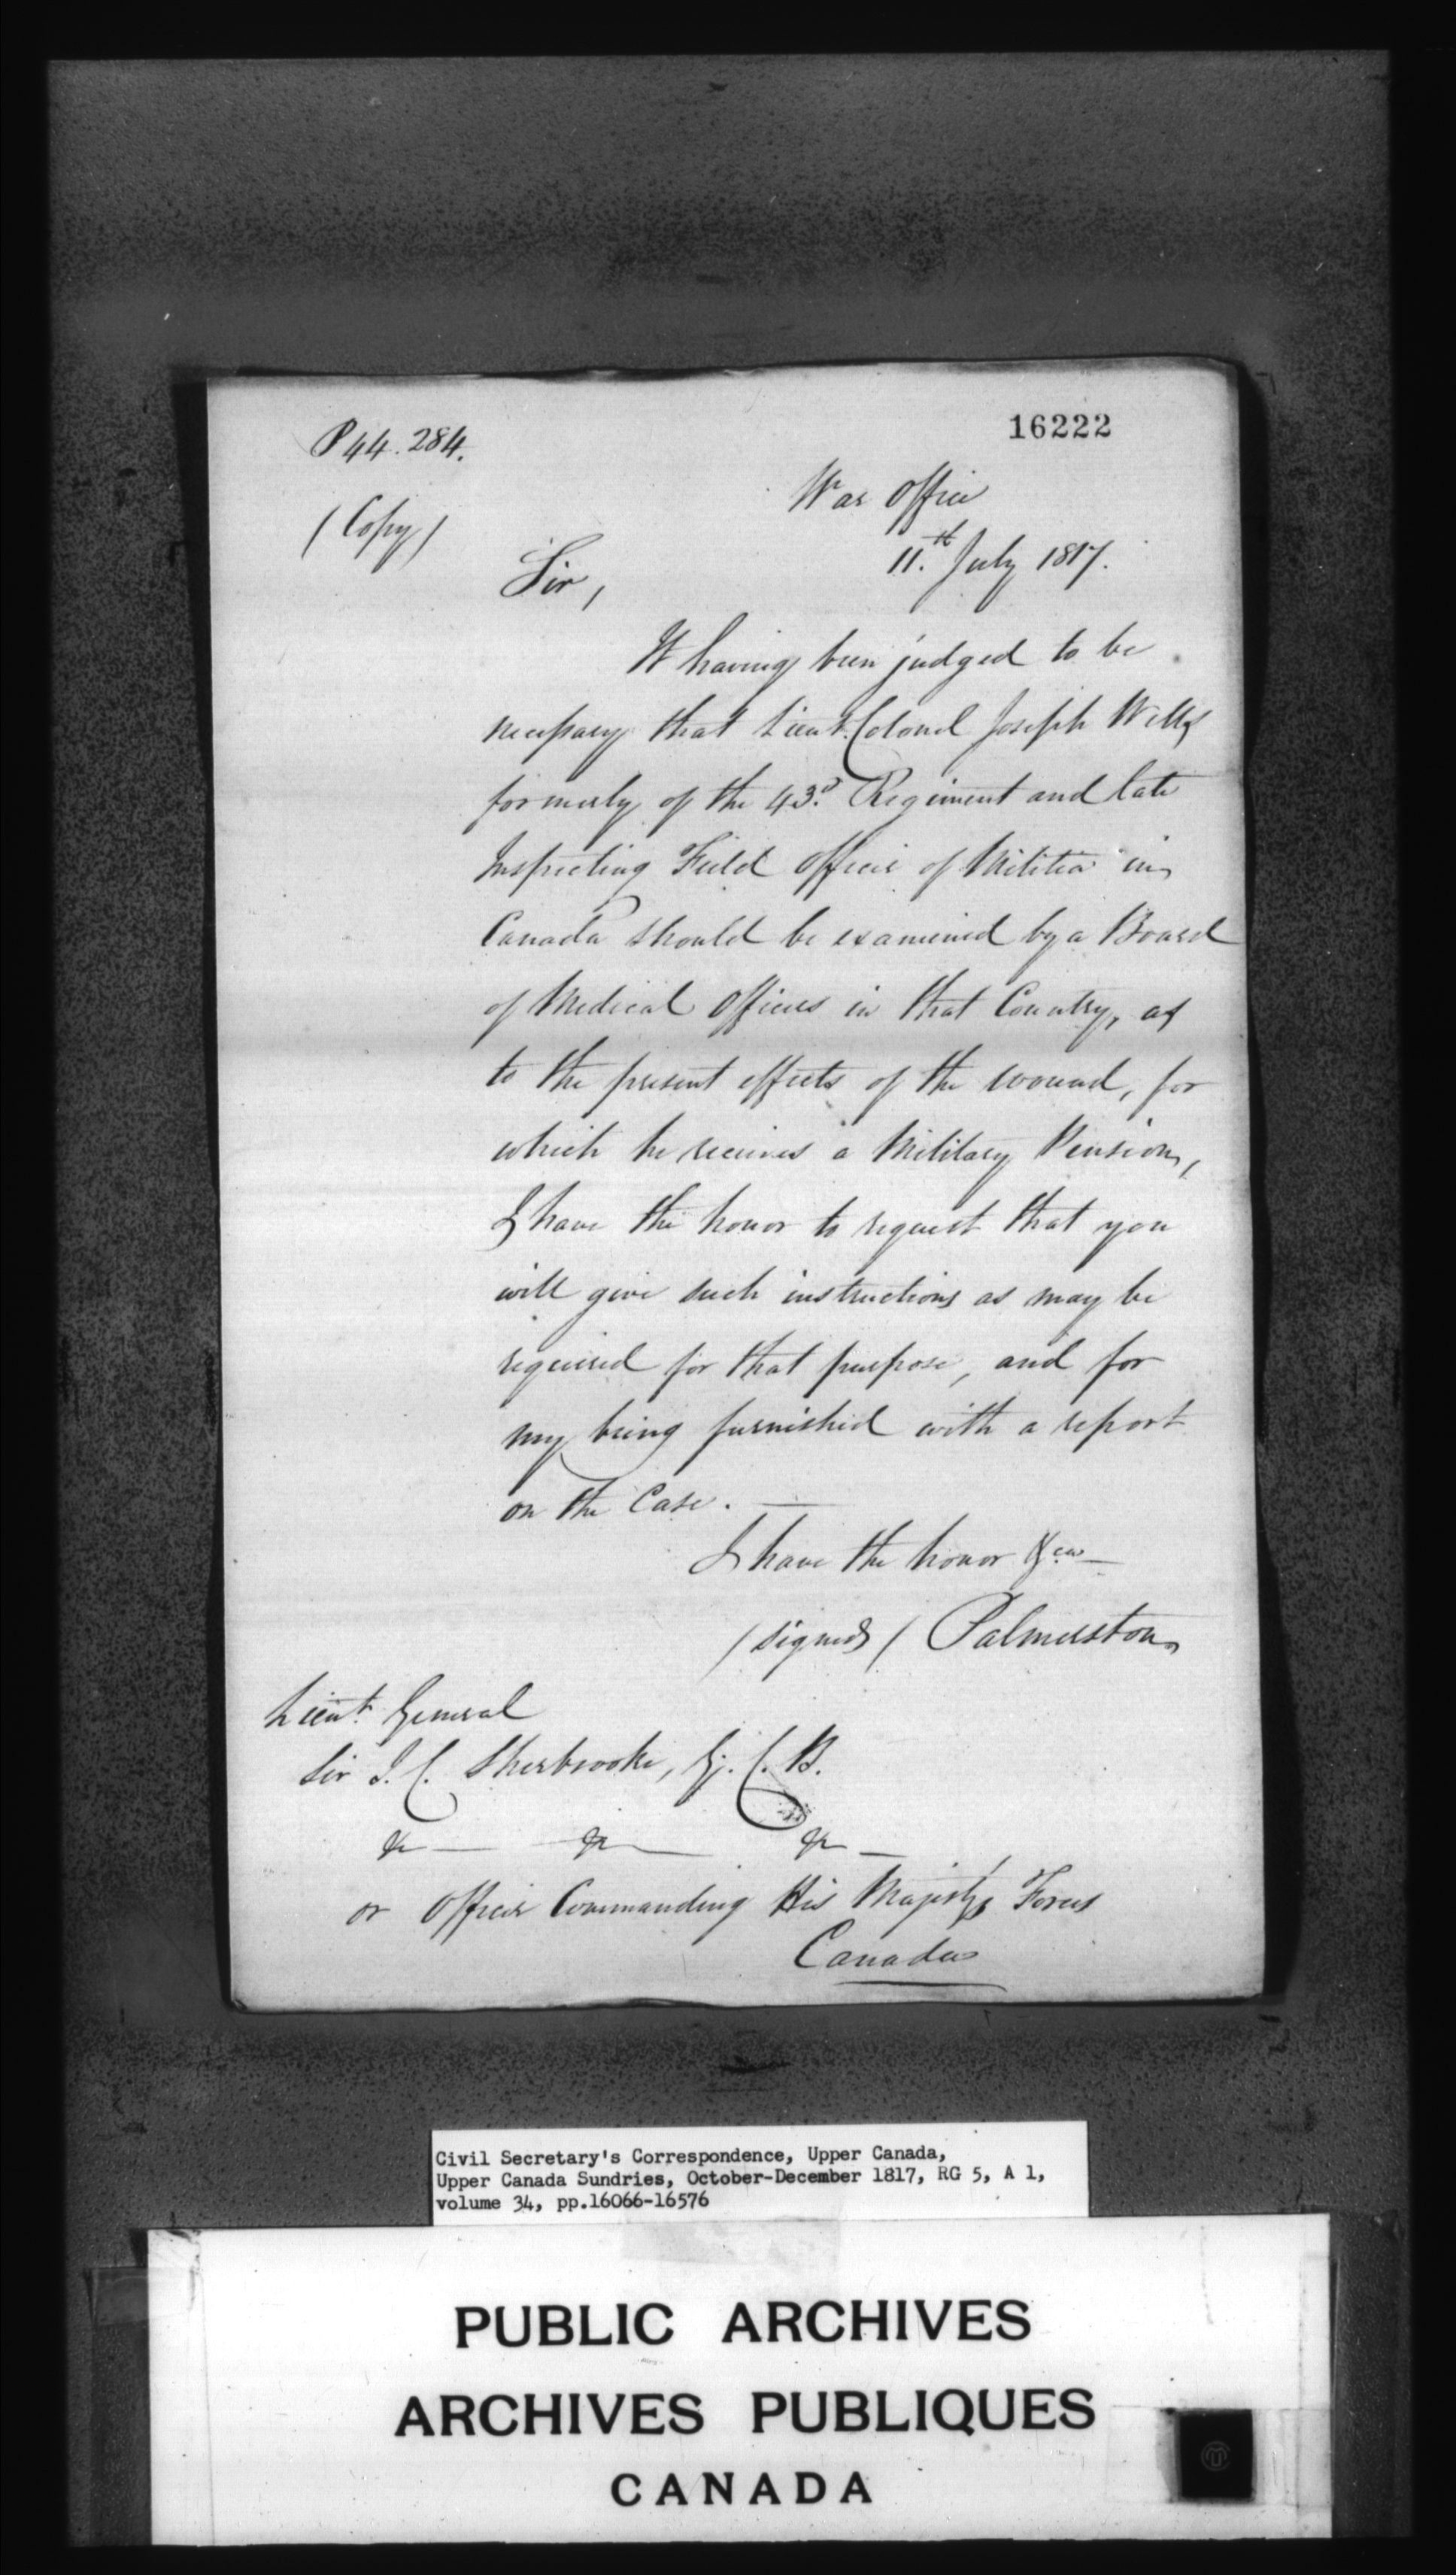 P 44. 284.
16222
(Copy)
War Office
11.th July 1817.
Sir,
It having been judged to be
necessary that Lieut. Colonel Joseph Wells
formerly of the 43.d Regiment and late
Inspecting Field Officer of Militia in
Canada should be examined by a Board
of Medical Officers in that Country, as
to the present effects of the wound, for
which he receives a Military Pension,
I have the honor to request that you
will give such instructions as may be
required for that purpose, and for
my being furnished with a report
on the Case. —
I have the honor &ca —
(signed) Palmerston
Lieut. General
Sir J. C. Sherbrooke, G. C. B.
&c — &c — &c —
or Officer Commanding His Majesty's Forces
Canada
Civil Secretary's Correspondence, Upper Canada,
Upper Canada Sundries, October-December 1817, RG 5, A 1,
volume 34, pp.16066-16576
PUBLIC ARCHIVES
ARCHIVES PUBLIQUES
CANADA